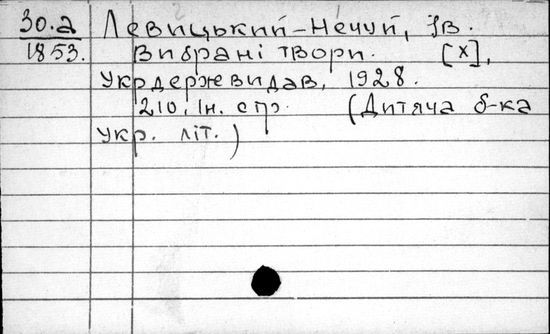 30.а Левицький-Нечуй, Ів.
1853. Вибрані твори. [Х],
Укрдержвидав, 1928.
210, Ін. стр. (Дитяча б-ка
укр. літ.)